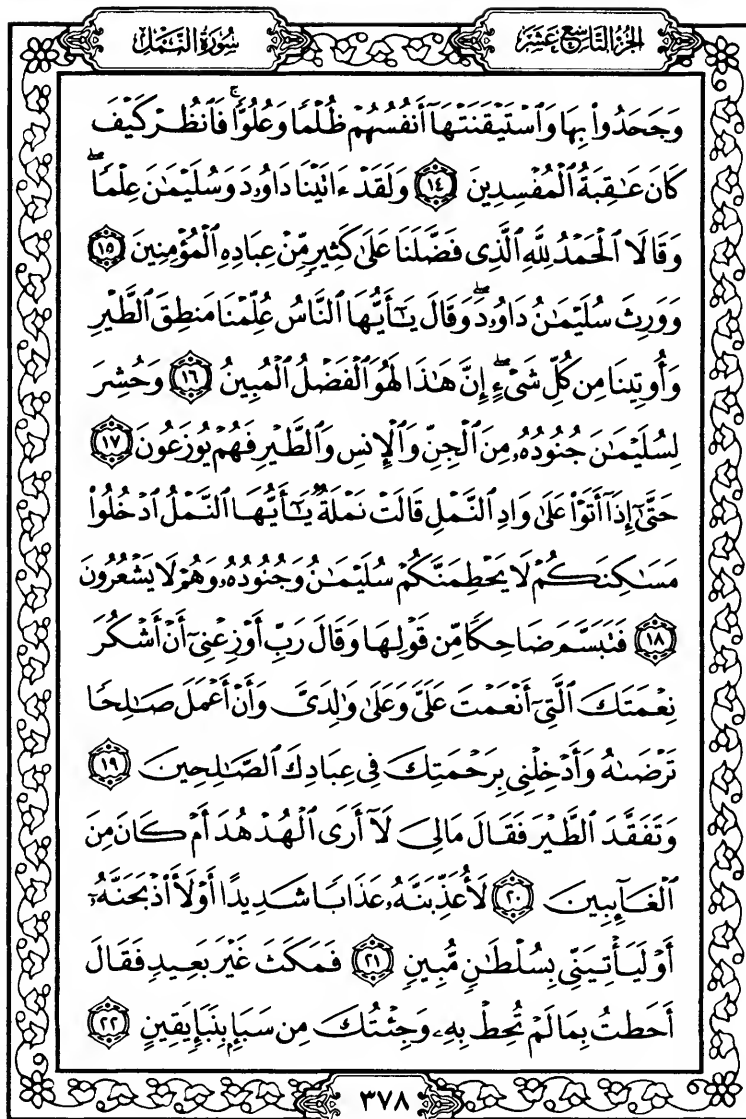 الجزء التاسع عشر
سورة النمل
وَجَحَدُوا۟ بِهَا وَٱسْتَيْقَنَتْهَآ أَنفُسُهُمْ ظُلْمًا وَعُلُوًّا ۚ فَٱنظُرْ كَيْفَ
كَانَ عَـٰقِبَةُ ٱلْمُفْسِدِينَ ١٤ وَلَقَدْ ءَاتَيْنَا دَاوُۥدَ وَسُلَيْمَـٰنَ عِلْمًا ۖ
وَقَالَا ٱلْحَمْدُ لِلَّهِ ٱلَّذِى فَضَّلَنَا عَلَىٰ كَثِيرٍ مِّنْ عِبَادِهِ ٱلْمُؤْمِنِينَ ١٥
وَوَرِثَ سُلَيْمَـٰنُ دَاوُۥدَ ۖ وَقَالَ يَـٰٓأَيُّهَا ٱلنَّاسُ عُلِّمْنَا مَنطِقَ ٱلطَّيْرِ
وَأُوتِينَا مِن كُلِّ شَىْءٍ ۖ إِنَّ هَـٰذَا لَهُوَ ٱلْفَضْلُ ٱلْمُبِينُ ١٦ وَحُشِرَ
لِسُلَيْمَـٰنَ جُنُودُهُۥ مِنَ ٱلْجِنِّ وَٱلْإِنسِ وَٱلطَّيْرِ فَهُمْ يُوزَعُونَ ١٧
حَتَّىٰٓ إِذَآ أَتَوْا۟ عَلَىٰ وَادِ ٱلنَّمْلِ قَالَتْ نَمْلَةٌ يَـٰٓأَيُّهَا ٱلنَّمْلُ ٱدْخُلُوا۟
مَسَـٰكِنَكُمْ لَا يَحْطِمَنَّكُمْ سُلَيْمَـٰنُ وَجُنُودُهُۥ وَهُمْ لَا يَشْعُرُونَ
١٨ فَتَبَسَّمَ ضَاحِكًا مِّن قَوْلِهَا وَقَالَ رَبِّ أَوْزِعْنِىٓ أَنْ أَشْكُرَ
نِعْمَتَكَ ٱلَّتِىٓ أَنْعَمْتَ عَلَىَّ وَعَلَىٰ وَٰلِدَىَّ وَأَنْ أَعْمَلَ صَـٰلِحًا
تَرْضَىٰهُ وَأَدْخِلْنِى بِرَحْمَتِكَ فِى عِبَادِكَ ٱلصَّـٰلِحِينَ ١٩
وَتَفَقَّدَ ٱلطَّيْرَ فَقَالَ مَالِىَ لَآ أَرَى ٱلْهُدْهُدَ أَمْ كَانَ مِنَ
ٱلْغَآئِبِينَ ٢٠ لَأُعَذِّبَنَّهُۥ عَذَابًا شَدِيدًا أَوْ لَأَا۟ذْبَحَنَّهُۥٓ
أَوْ لَيَأْتِيَنِّى بِسُلْطَـٰنٍ مُّبِينٍ ٢١ فَمَكَثَ غَيْرَ بَعِيدٍ فَقَالَ
أَحَطتُ بِمَا لَمْ تُحِطْ بِهِۦ وَجِئْتُكَ مِن سَبَإٍ بِنَبَإٍ يَقِينٍ ٢٢
٣٧٨